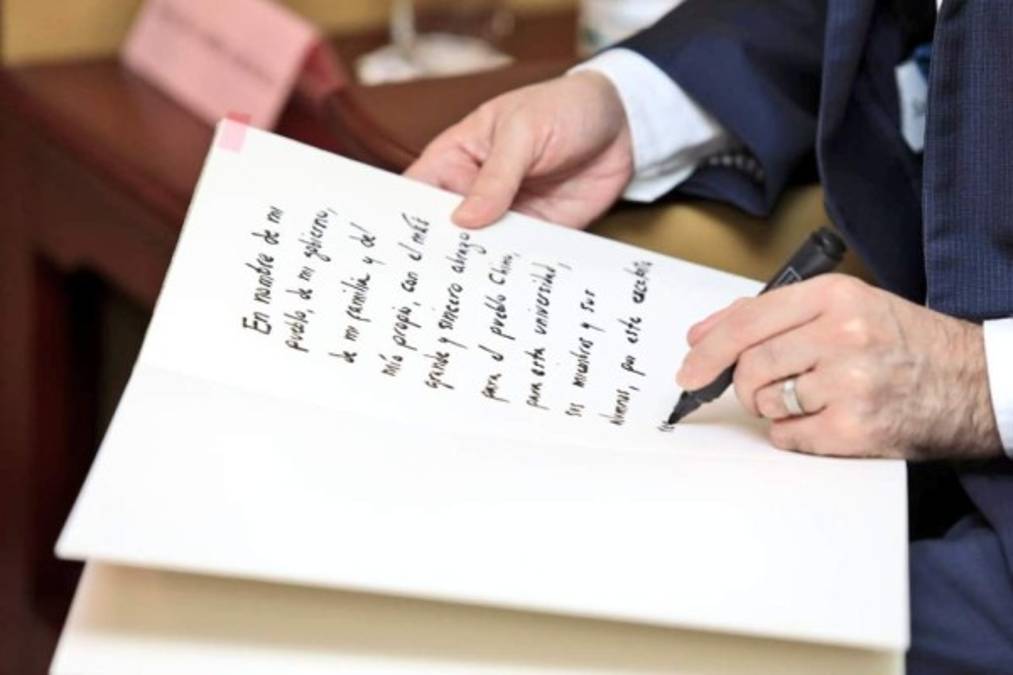 En nombre de mi
pueblo, de mi gobierno,
de mi familia y del
mío propio, con el más
grande y sincero abrazo
para el pueblo Chino,
para esta universidad,
sus miembros y sus
alumnos, por este excelente